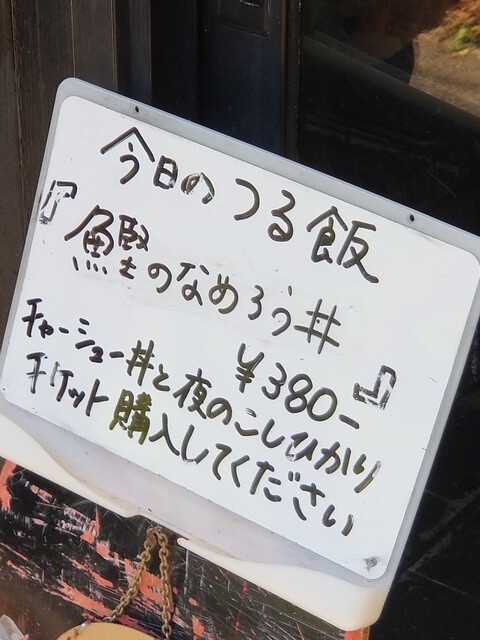 今日のつる飯
『鰹のなめろう丼
¥380-』
チャーシュー丼と夜のこしひかり
チケット購入してください